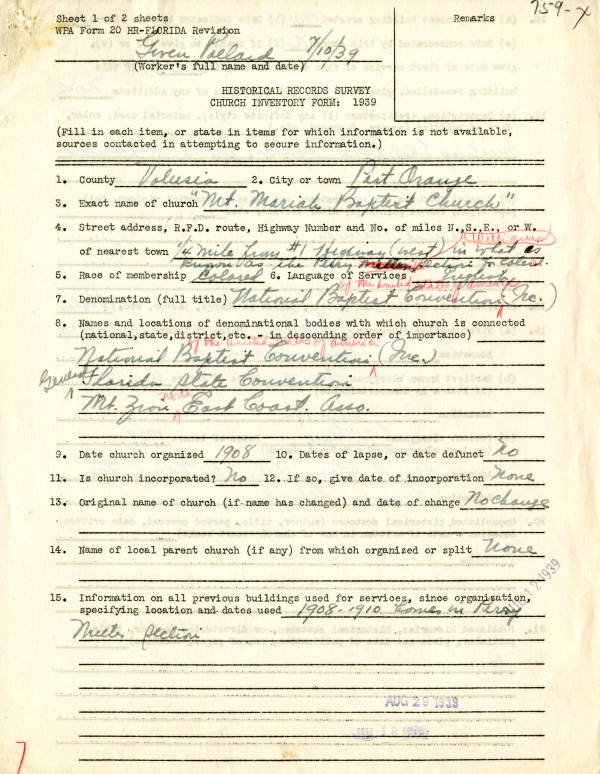 Sheet 1 of 2 sheets
Remarks
759-X
WPA Form 20 HR-FLORIDA Revision
7/10/39
(Worker's full name and date)
HISTORICAL RECORDS SURVEY
CHURCH INVENTORY FORM: 1939
(Fill in each item, or state in items for which information is not available,
sources contacted in attempting to secure information.)
1. County Volusia 2. City or town Port Orange
3. Exact name of church "Mt. Moriah Baptist Church"
4. Street address, R.F.D. route, Highway Number and No. of miles N.,S.,E., or W.
of nearest town 1/4 mile from #1 Highway (west) in what is
known as the
5. Race of membership Colored 6. Language of Services English
of the United States of America
7. Denomination (full title) National Baptist Convention (Inc.)
8. Names and locations of denominational bodies with which church is connected
(national,state,district,etc. - in descending order of importance)
of the United States of America
National Baptist Convention (Inc.)
General Florida State Convention
north
Mt. Zion East Coast Asso.
9. Date church organized 1908 10. Dates of lapse, or date defunct No
11. Is church incorporated? No 12. If so, give date of incorporation None
13. Original name of church (if name has changed) and date of change No Change
14. Name of local parent church (if any) from which organized or split None
15. Information on all previous buildings used for services, since organization,
specifying location and dates used 1908-1910 homes in
section
AUG 29 1939
7